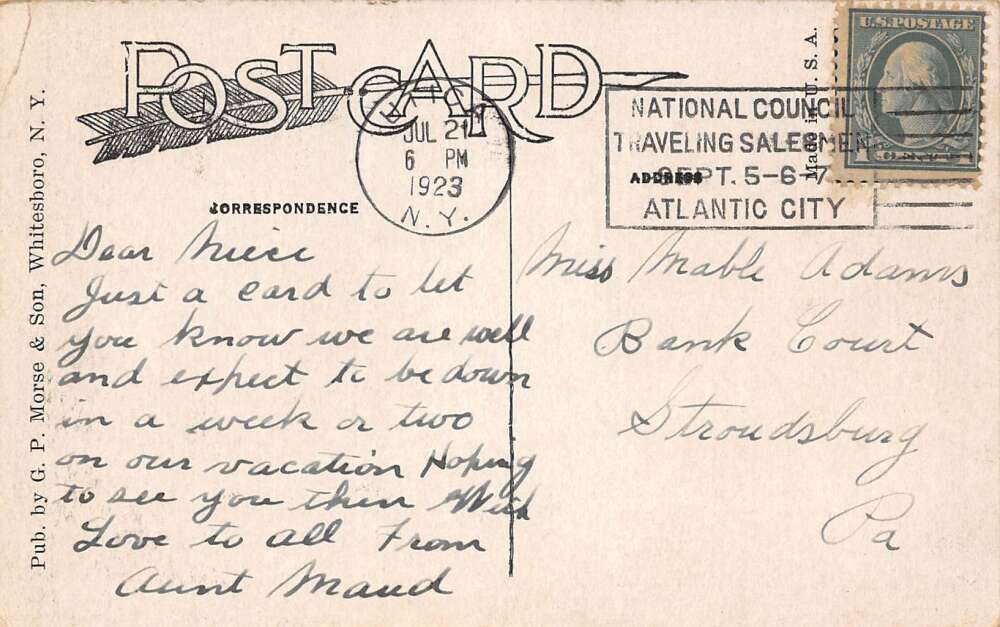 POST CARD
U.S. POSTAGE
Made in U. S. A.
JUL 21
6 PM
1923
N.Y.
NATIONAL COUNCIL
TRAVELING SALESMEN
SEPT. 5-6-7
ATLANTIC CITY
ADDRESS
CORRESPONDENCE
Pub. by G. P. Morse & Son, Whitesboro, N. Y.
Dear Niece
Just a card to let
you know we are well
and expect to be down
in a week or two
on our vacation Hoping
to see you then With
Love to all From
Aunt Maud
Miss Mable Adams
Bank Court
Stroudsburg
Pa